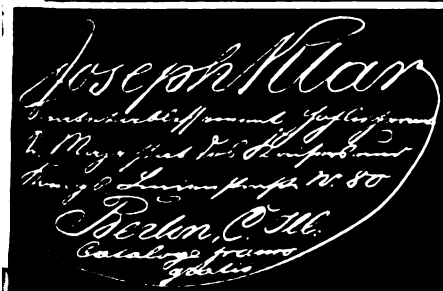 Joseph Klar
Samenetablissement Hoflieferant
Sr. Majestät des Kaisers und
Königs Linienstraße N. 80
Berlin, C.
Cataloge franco
gratis